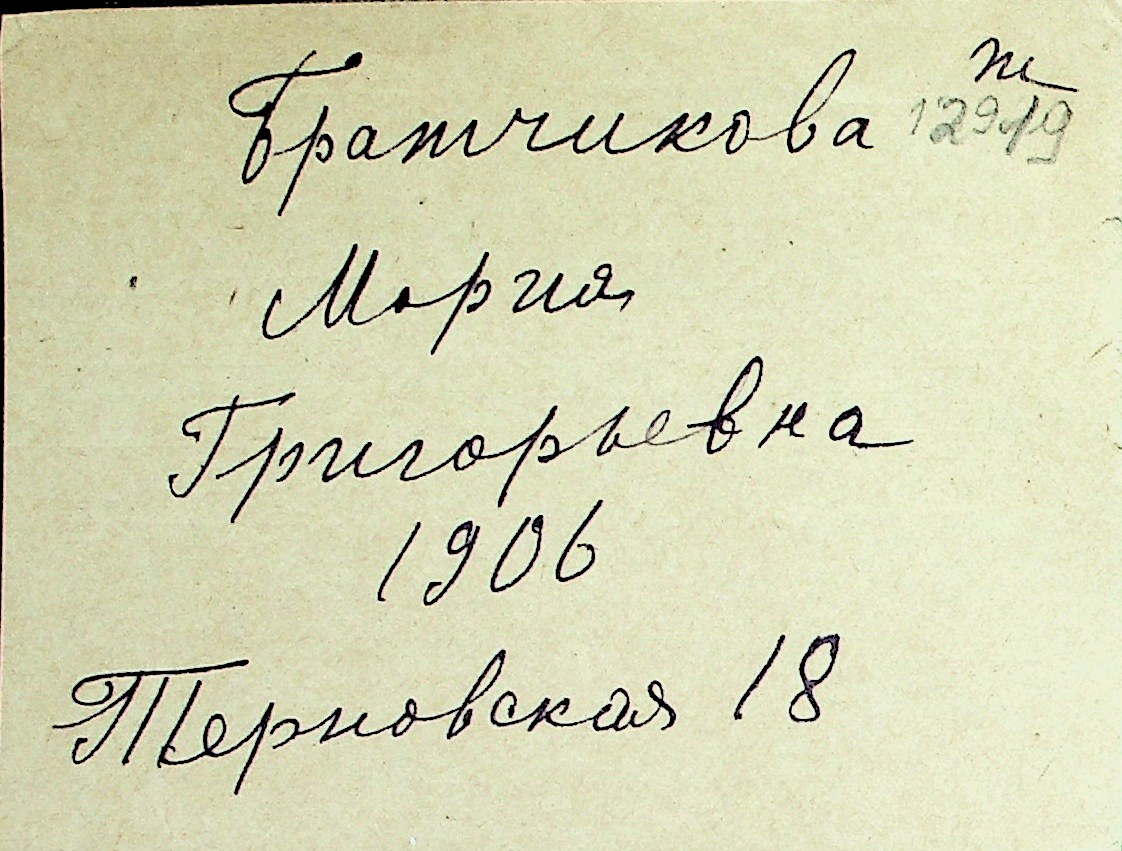 Братчикова
Мария
Григорьевна
1906
Терновская 18